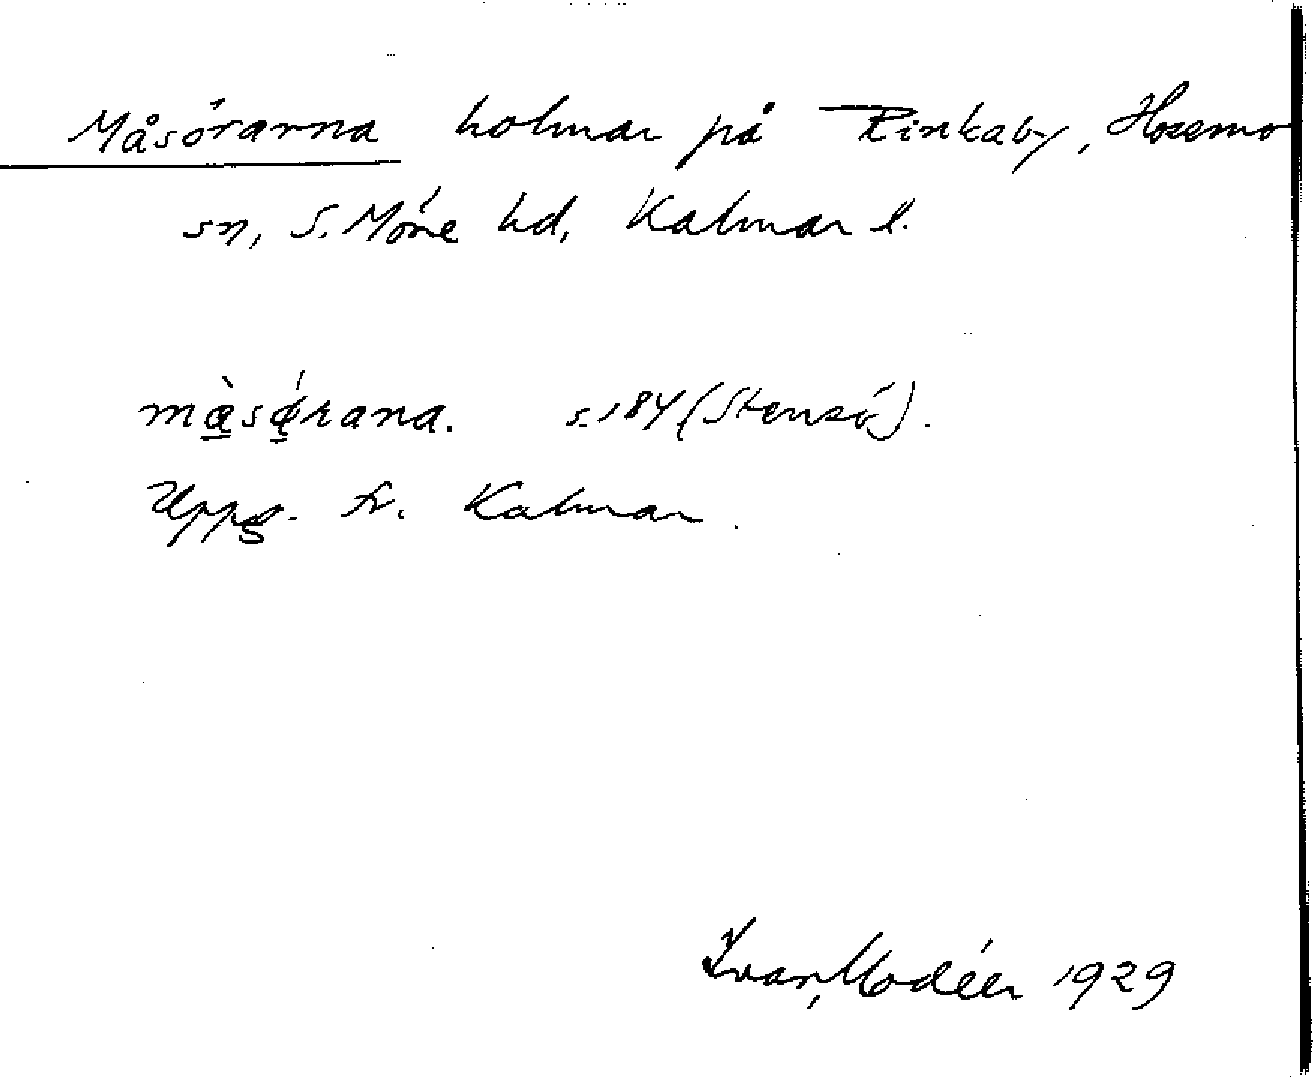 Måsörarna holmar på Rinkaby, Hossmo
sn, S. Möre hd, Kalmar l.
s. 184 (Stensö).
Uppg. fr. Kalmar.
Ivar Modéer 1929